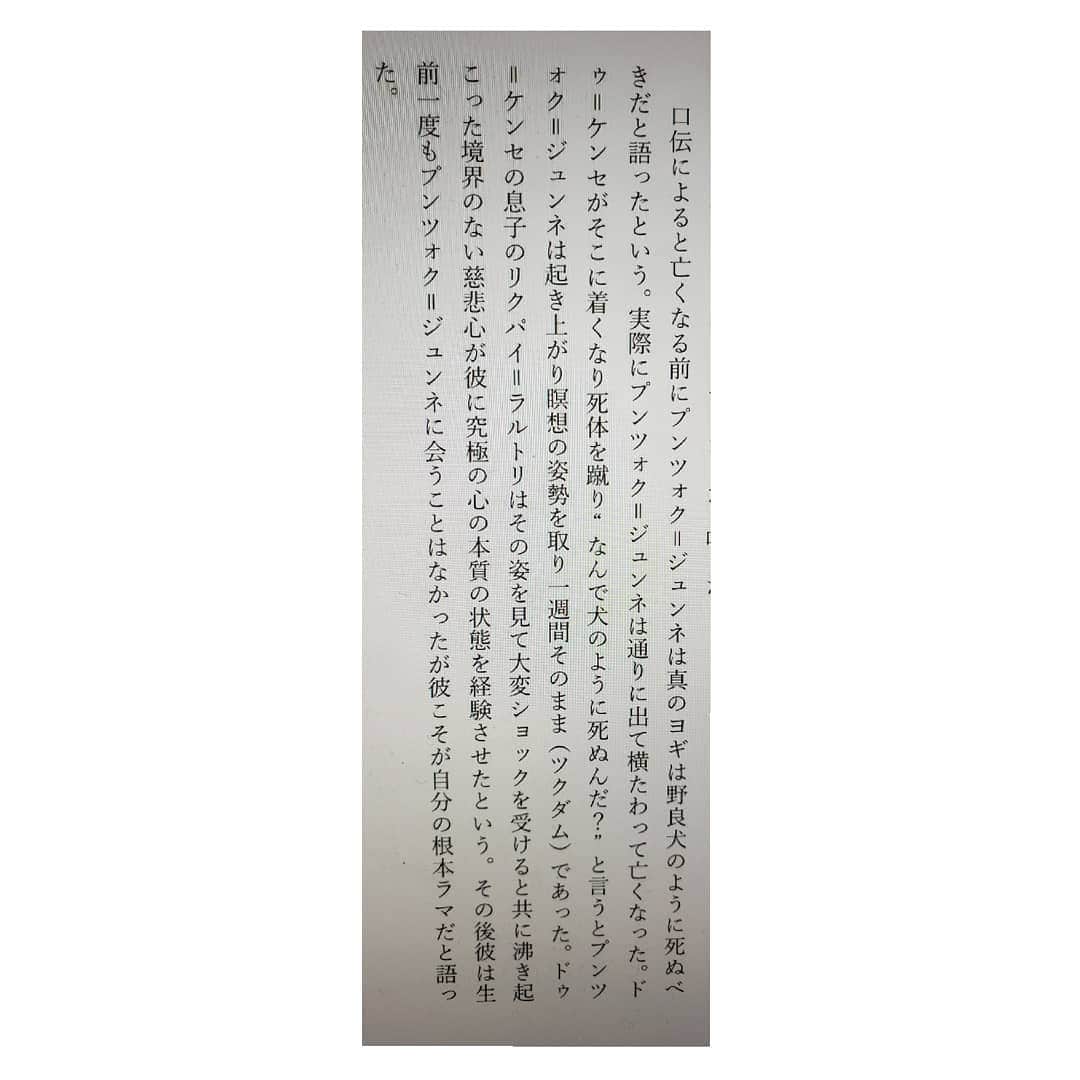 口伝によると亡くなる前にプンツォク＝ジュンネは真のヨギは野良犬のように死ぬべ
きだと語ったという。実際にプンツォク＝ジュンネは通りに出て横たわって亡くなった。ド
ゥ＝ケンセがそこに着くなり死体を蹴り“なんで犬のように死ぬんだ？”と言うとプンツ
ォク＝ジュンネは起き上がり瞑想の姿勢を取り一週間そのまま（ツクダム）であった。ドゥ
＝ケンセの息子のリクパイ＝ラルトリはその姿を見て大変ショックを受けると共に沸き起
こった境界のない慈悲心が彼に究極の心の本質の状態を経験させたという。その後彼は生
前一度もプンツォク＝ジュンネに会うことはなかったが彼こそが自分の根本ラマだと語っ
た。